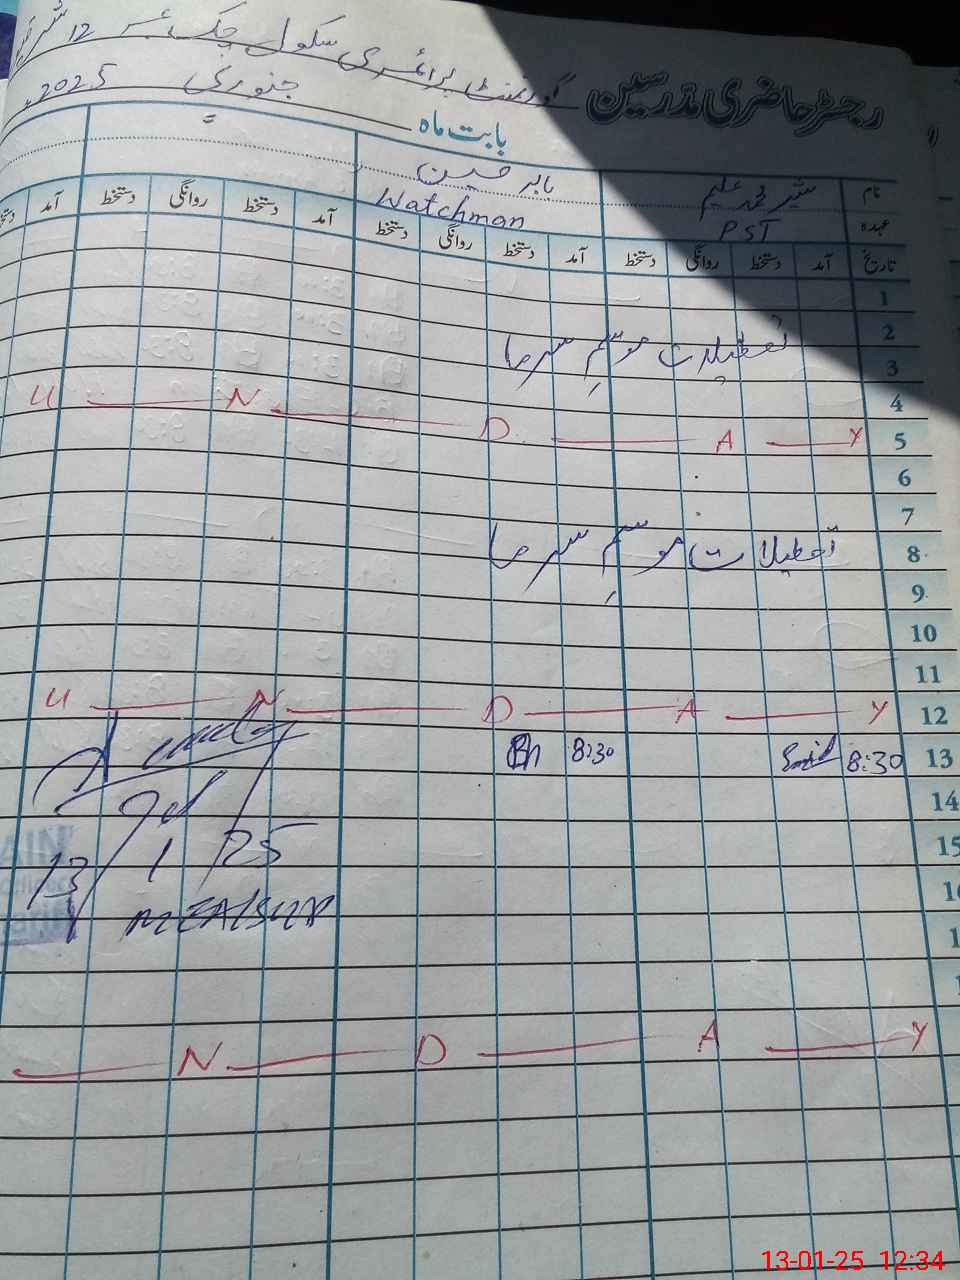 رجسٹر حاضری مدرسین گورنمنٹ پرائمری سکول چک نمبر 12
بابت ماہ جنوری 2025ء
نام محمد علیم بابر حسین
عہدہ PST Watchman
تاریخ آمد دستخط روانگی دستخط آمد دستخط روانگی دستخط آمد دستخط روانگی دستخط آمد
1
2
تعطیلات موسمِ سرما
3
4
5 U N D A Y
6
7
8 تعطیلات موسمِ سرما
9
10
11
12 U N D A Y
13 8:30 8:30
14
15
13/1/25
AIN
N D A Y
13-01-25 12:34